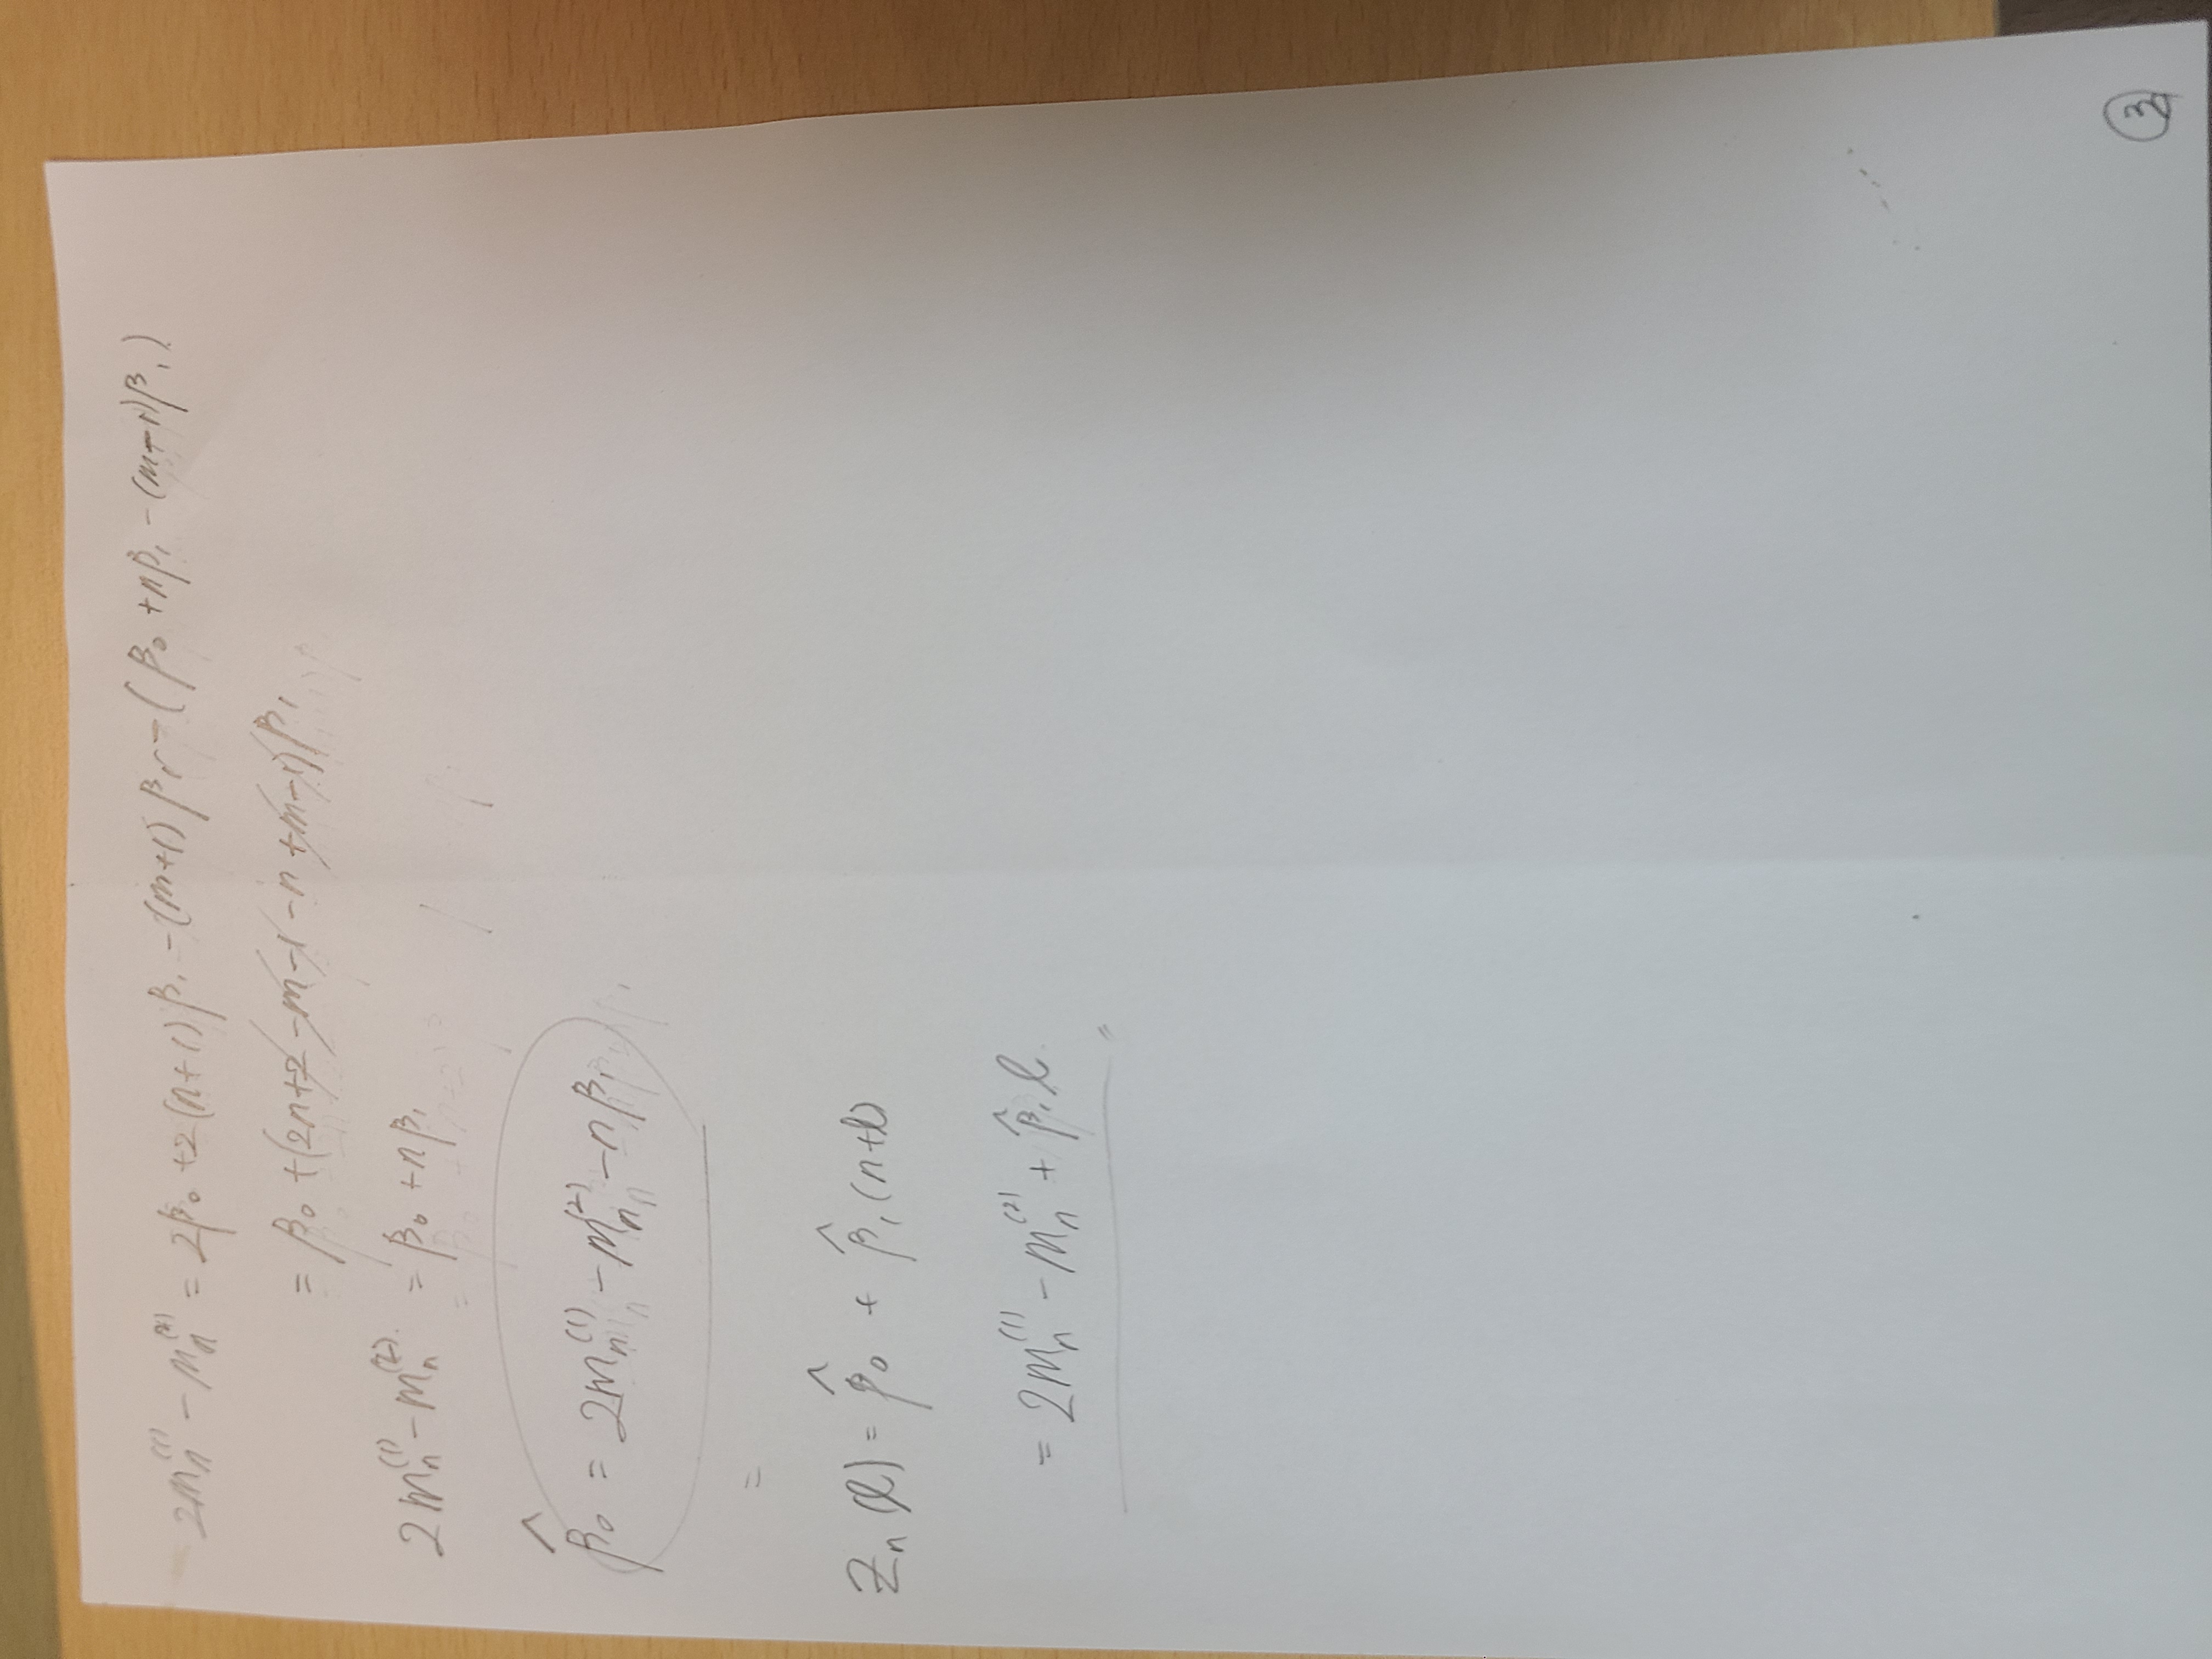 2mₙ⁽¹⁾ - mₙ⁽²⁾ = 2β₀ + 2(n+1)β₁ - (m+1)β₁ - (β₀ + nβ₁ - (m-1)β₁)
= β₀ + (2n+2-m-1-n+m-1)β₁
2mₙ⁽¹⁾ - mₙ⁽²⁾ = β₀ + nβ₁
β̂₀ = 2mₙ⁽¹⁾ - mₙ⁽²⁾ - nβ₁
=
Zₙ(l) = β̂₀ + β̂₁(n+l)
= 2mₙ⁽¹⁾ - mₙ⁽²⁾ + β̂₁l
③